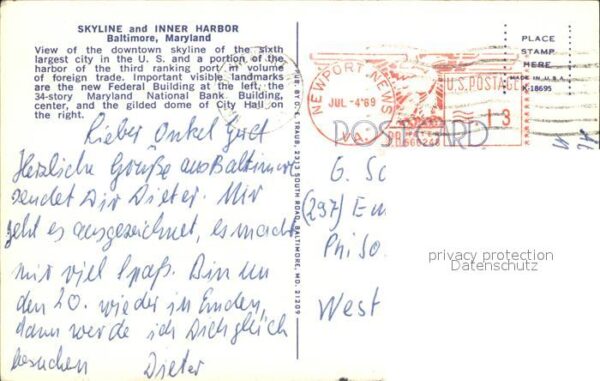 SKYLINE and INNER HARBOR
Baltimore, Maryland
View of the downtown skyline of the sixth
largest city in the U. S. and a portion of the
harbor of the third ranking port in volume
of foreign trade. Important visible landmarks
are the new Federal Building at the left, the
34-story Maryland National Bank Building,
center, and the gilded dome of City Hall on
the right.
Lieber Onkel
Herzliche Grüße aus Baltimore
sendet Dir Dieter. Mir
geht es ausgezeichnet, es macht
mir viel Spaß. Bin um
den 20. wieder in Emden,
dann werde ich Dich gleich
besuchen Dieter
PUB. BY D. E. TRAUB, 2313 SOUTH ROAD, BALTIMORE, MD. 21209
NEWPORT NEWS
JUL -4'69
VA.
U.S. POSTAGE
13
P.B. 660248
POSTCARD
PLACE
STAMP
HERE
MADE IN U.S.A.
K-18695
G. Sc
(297) Em
Phil So
West
privacy protection
Datenschutz